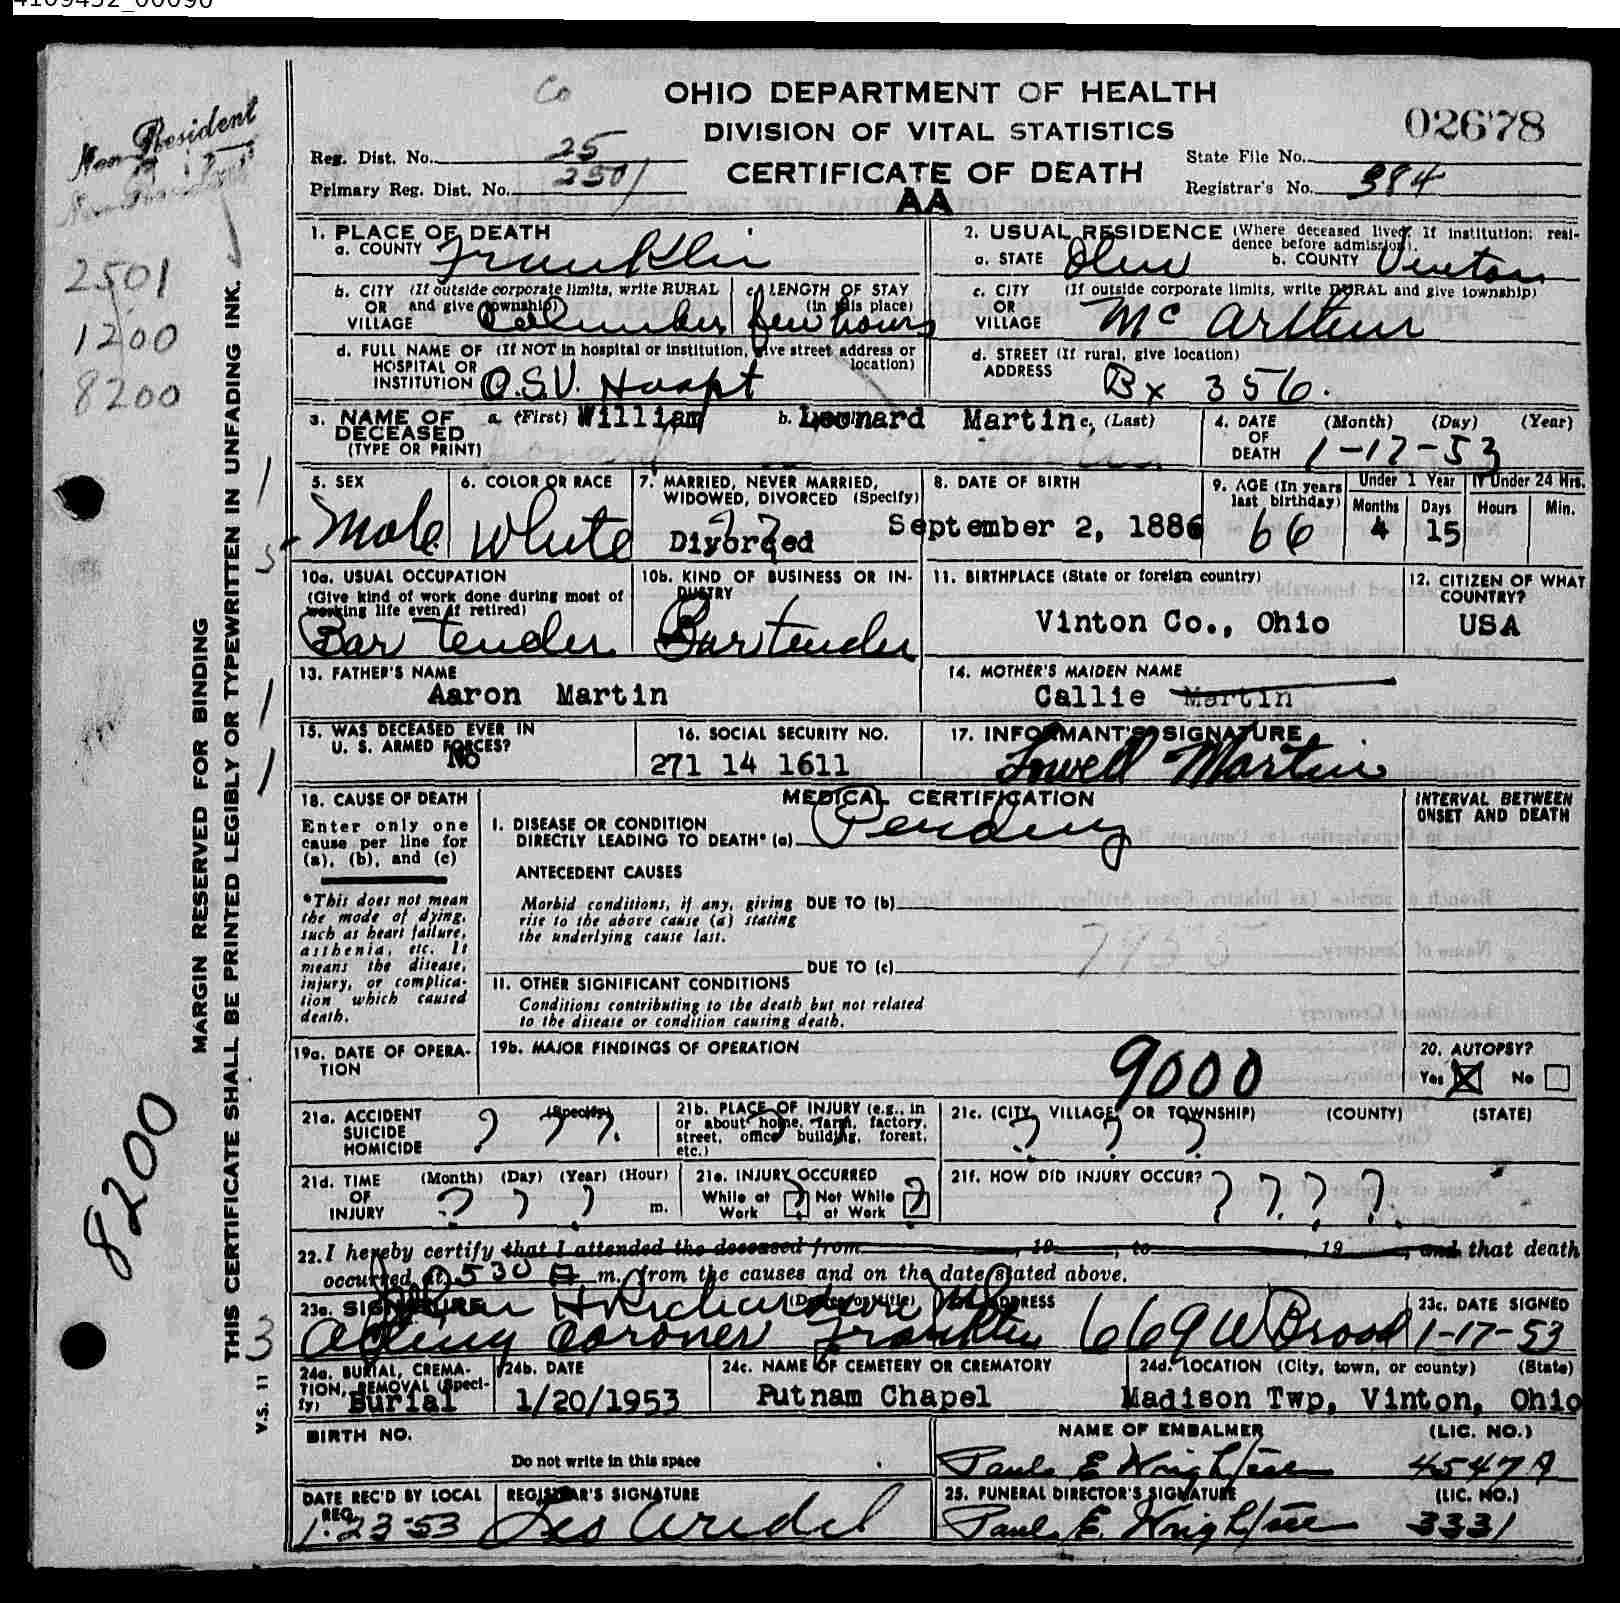 Non-Resident
2501
1200
8200
8200
MARGIN RESERVED FOR BINDING
THIS CERTIFICATE SHALL BE PRINTED LEGIBLY OR TYPEWRITTEN IN UNFADING INK.
V.S. 11
3
Co
OHIO DEPARTMENT OF HEALTH
DIVISION OF VITAL STATISTICS
CERTIFICATE OF DEATH
AA
02678
Reg. Dist. No. 25
Primary Reg. Dist. No. 2501
State File No.
Registrar's No. 384
1. PLACE OF DEATH
a. COUNTY Franklin
2. USUAL RESIDENCE (Where deceased lived. If institution: residence before admission).
a. STATE Ohio b. COUNTY Vinton
b. CITY (If outside corporate limits, write RURAL and give township) OR VILLAGE Columbus
c. LENGTH OF STAY (in this place) few hours
c. CITY (If outside corporate limits, write RURAL and give township) OR VILLAGE McArthur
d. FULL NAME OF (If NOT in hospital or institution, give street address or location) HOSPITAL OR INSTITUTION O.S.U. Hospt
d. STREET (If rural, give location) ADDRESS Bx 356.
3. NAME OF DECEASED (TYPE OR PRINT) a. (First) William b. Leonard Martin c. (Last)
4. DATE OF DEATH (Month) (Day) (Year) 1-17-53
5. SEX Male
6. COLOR OR RACE White
7. MARRIED, NEVER MARRIED, WIDOWED, DIVORCED (Specify) Divorced
8. DATE OF BIRTH September 2, 1886
9. AGE (In years last birthday) 66
Under 1 Year Months 4 Days 15
If Under 24 Hrs. Hours Min.
10a. USUAL OCCUPATION (Give kind of work done during most of working life even if retired) Bar tender
10b. KIND OF BUSINESS OR INDUSTRY Bartender
11. BIRTHPLACE (State or foreign country) Vinton Co., Ohio
12. CITIZEN OF WHAT COUNTRY? USA
13. FATHER'S NAME Aaron Martin
14. MOTHER'S MAIDEN NAME Callie Martin
15. WAS DECEASED EVER IN U. S. ARMED FORCES? No
16. SOCIAL SECURITY NO. 271 14 1611
17. INFORMANT'S SIGNATURE Lowell Martin
18. CAUSE OF DEATH
Enter only one cause per line for (a), (b), and (c)
*This does not mean the mode of dying, such as heart failure, asthenia, etc. It means the disease, injury, or complication which caused death.
MEDICAL CERTIFICATION
INTERVAL BETWEEN ONSET AND DEATH
I. DISEASE OR CONDITION DIRECTLY LEADING TO DEATH* (a) Pending
ANTECEDENT CAUSES
Morbid conditions, if any, giving rise to the above cause (a) stating the underlying cause last.
DUE TO (b)
DUE TO (c)
7955
II. OTHER SIGNIFICANT CONDITIONS
Conditions contributing to the death but not related to the disease or condition causing death.
19a. DATE OF OPERATION
19b. MAJOR FINDINGS OF OPERATION
9000
20. AUTOPSY?
Yes X No
21a. ACCIDENT SUICIDE HOMICIDE (Specify) ? ? ?.
21b. PLACE OF INJURY (e.g., in or about home, farm, factory, street, office building, forest, etc.) ?
21c. (CITY, VILLAGE, OR TOWNSHIP) (COUNTY) (STATE) ? ? ?
21d. TIME OF INJURY (Month) (Day) (Year) (Hour) m. ? ? ?
21e. INJURY OCCURRED While at Work ? Not While at Work ?
21f. HOW DID INJURY OCCUR? ? ? ? ?
22. I hereby certify that I attended the deceased from , 19 , to , 19 , and that death
occurred at 530 A m. from the causes and on the date stated above.
23a. SIGNATURE (Degree or title) Richardson
Acting Coroner Franklin
23b. ADDRESS 669 W Broad
23c. DATE SIGNED 1-17-53
24a. BURIAL, CREMATION, REMOVAL (Specify) Burial
24b. DATE 1/20/1953
24c. NAME OF CEMETERY OR CREMATORY Putnam Chapel
24d. LOCATION (City, town, or county) (State) Madison Twp, Vinton, Ohio
BIRTH NO.
Do not write in this space
NAME OF EMBALMER (LIC. NO.)
Paul E 4547A
DATE REC'D BY LOCAL REG. 1-23-53
REGISTRAR'S SIGNATURE
25. FUNERAL DIRECTOR'S SIGNATURE (LIC. NO.)
Paul E. 3331